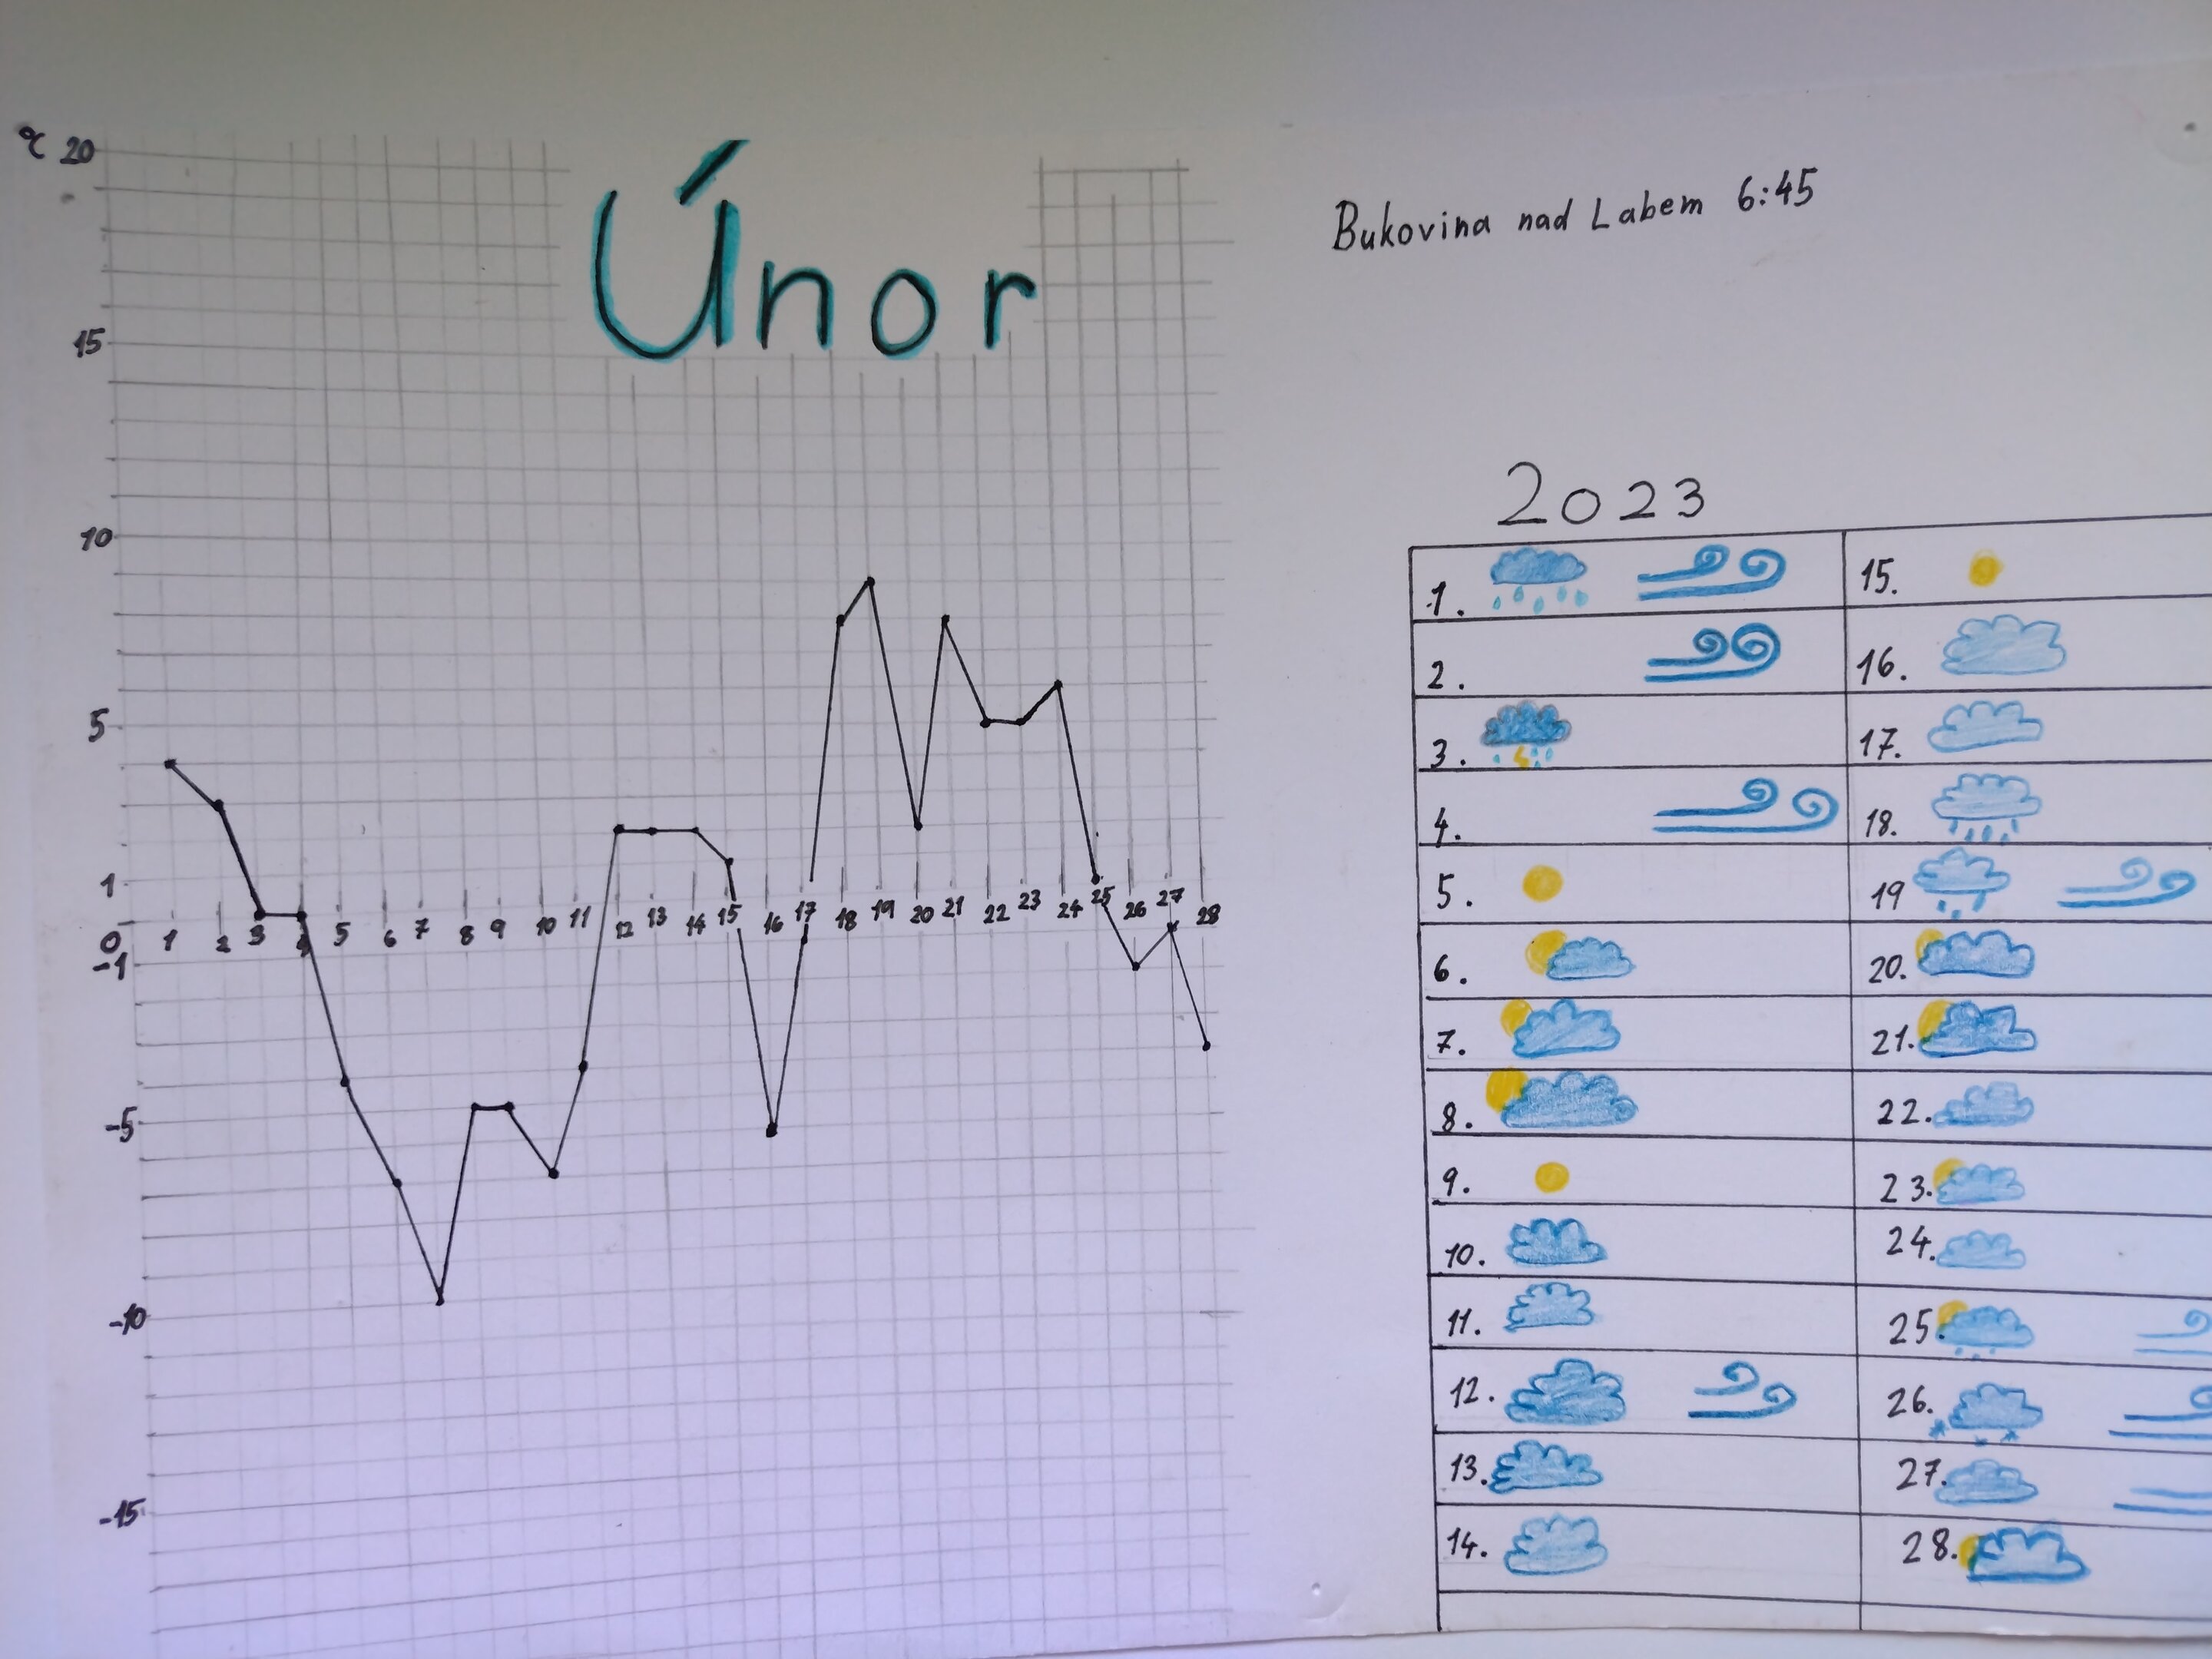 Únor
°C 20
15
10
5
1
0
-1
-5
-10
-15
1 2 3 4 5 6 7 8 9 10 11 12 13 14 15 16 17 18 19 20 21 22 23 24 25 26 27 28
Bukovina nad Labem 6:45
2023
1.
2.
3.
4.
5.
6.
7.
8.
9.
10.
11.
12.
13.
14.
15.
16.
17.
18.
19
20.
21.
22.
23.
24.
25.
26.
27.
28.